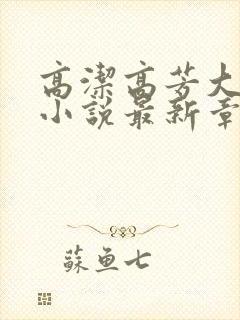 高潔高芳大
小說最新章
蘇魚七